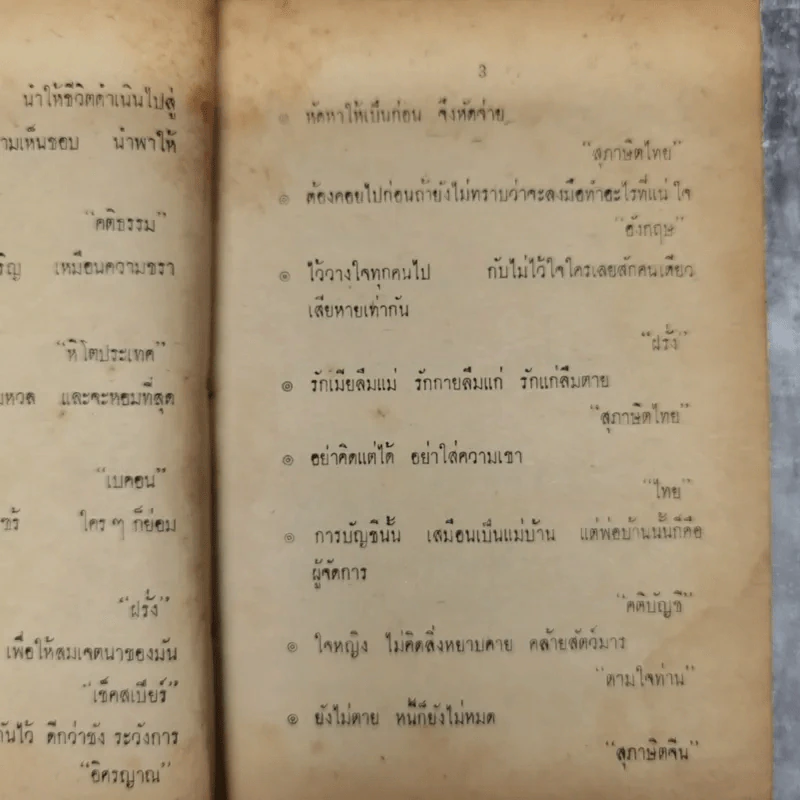 นำให้ชีวิตดำเนินไปสู่
ามเห็นชอบ นำพาให้
"คติธรรม"
ริญ เหมือนความชรา
"หิโตประเทศ"
และจะหอมที่สุด
"เบคอน"
ใคร ๆ ก็ย่อม
"ฝรั่ง"
เพื่อให้สมเจตนาของมัน
"เช็คสเบียร์"
กันไว้ ดีกว่าชัง ระวังการ
"อิศรญาณ"
3
๏ หัดหาให้เป็นก่อน จึงหัดจ่าย
"สุภาษิตไทย"
๏ ต้องคอยไปก่อนถ้ายังไม่ทราบว่าจะลงมือทำอะไรที่แน่ใจ
"อังกฤษ"
๏ ไว้วางใจทุกคนไป กับไม่ไว้ใจใครเลยสักคนเดียว
เสียหายเท่ากัน
"ฝรั่ง"
๏ รักเมียลืมแม่ รักกายลืมแก่ รักแก่ลืมตาย
"สุภาษิตไทย"
๏ อย่าคิดแต่ได้ อย่าใส่ความเขา
"ไทย"
๏ การบัญชีนั้น เสมือนเป็นแม่บ้าน แต่พ่อบ้านนั้นก็คือ
ผู้จัดการ
"คติบัญชี"
๏ ใจหญิง ไม่คิดสิ่งหยาบคาย คล้ายสัตว์มาร
"ตามใจท่าน"
๏ ยังไม่ตาย หนี้ก็ยังไม่หมด
"สุภาษิตจีน"